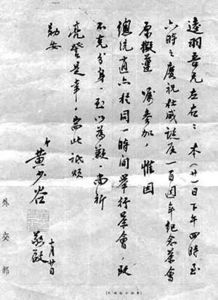 遠羽吾兄左右：本（廿一）日下午四時至
六時之慶祝杜威誕辰一百週年紀念茶會
原擬遵囑參加，惟因
總統適亦於同一時間舉行茶會，致
不克分身，至以為歉，尚祈
亮詧是幸，耑此，敬頌
勛安
弟黃少谷
敬啟
十月廿日
外交部